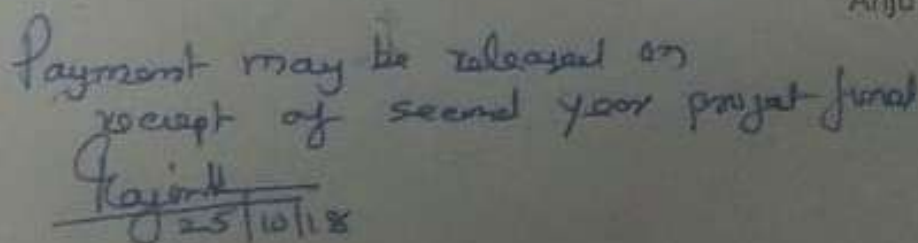 Anju
Payment may be released on
reciept of second year projat fund
25/10/18